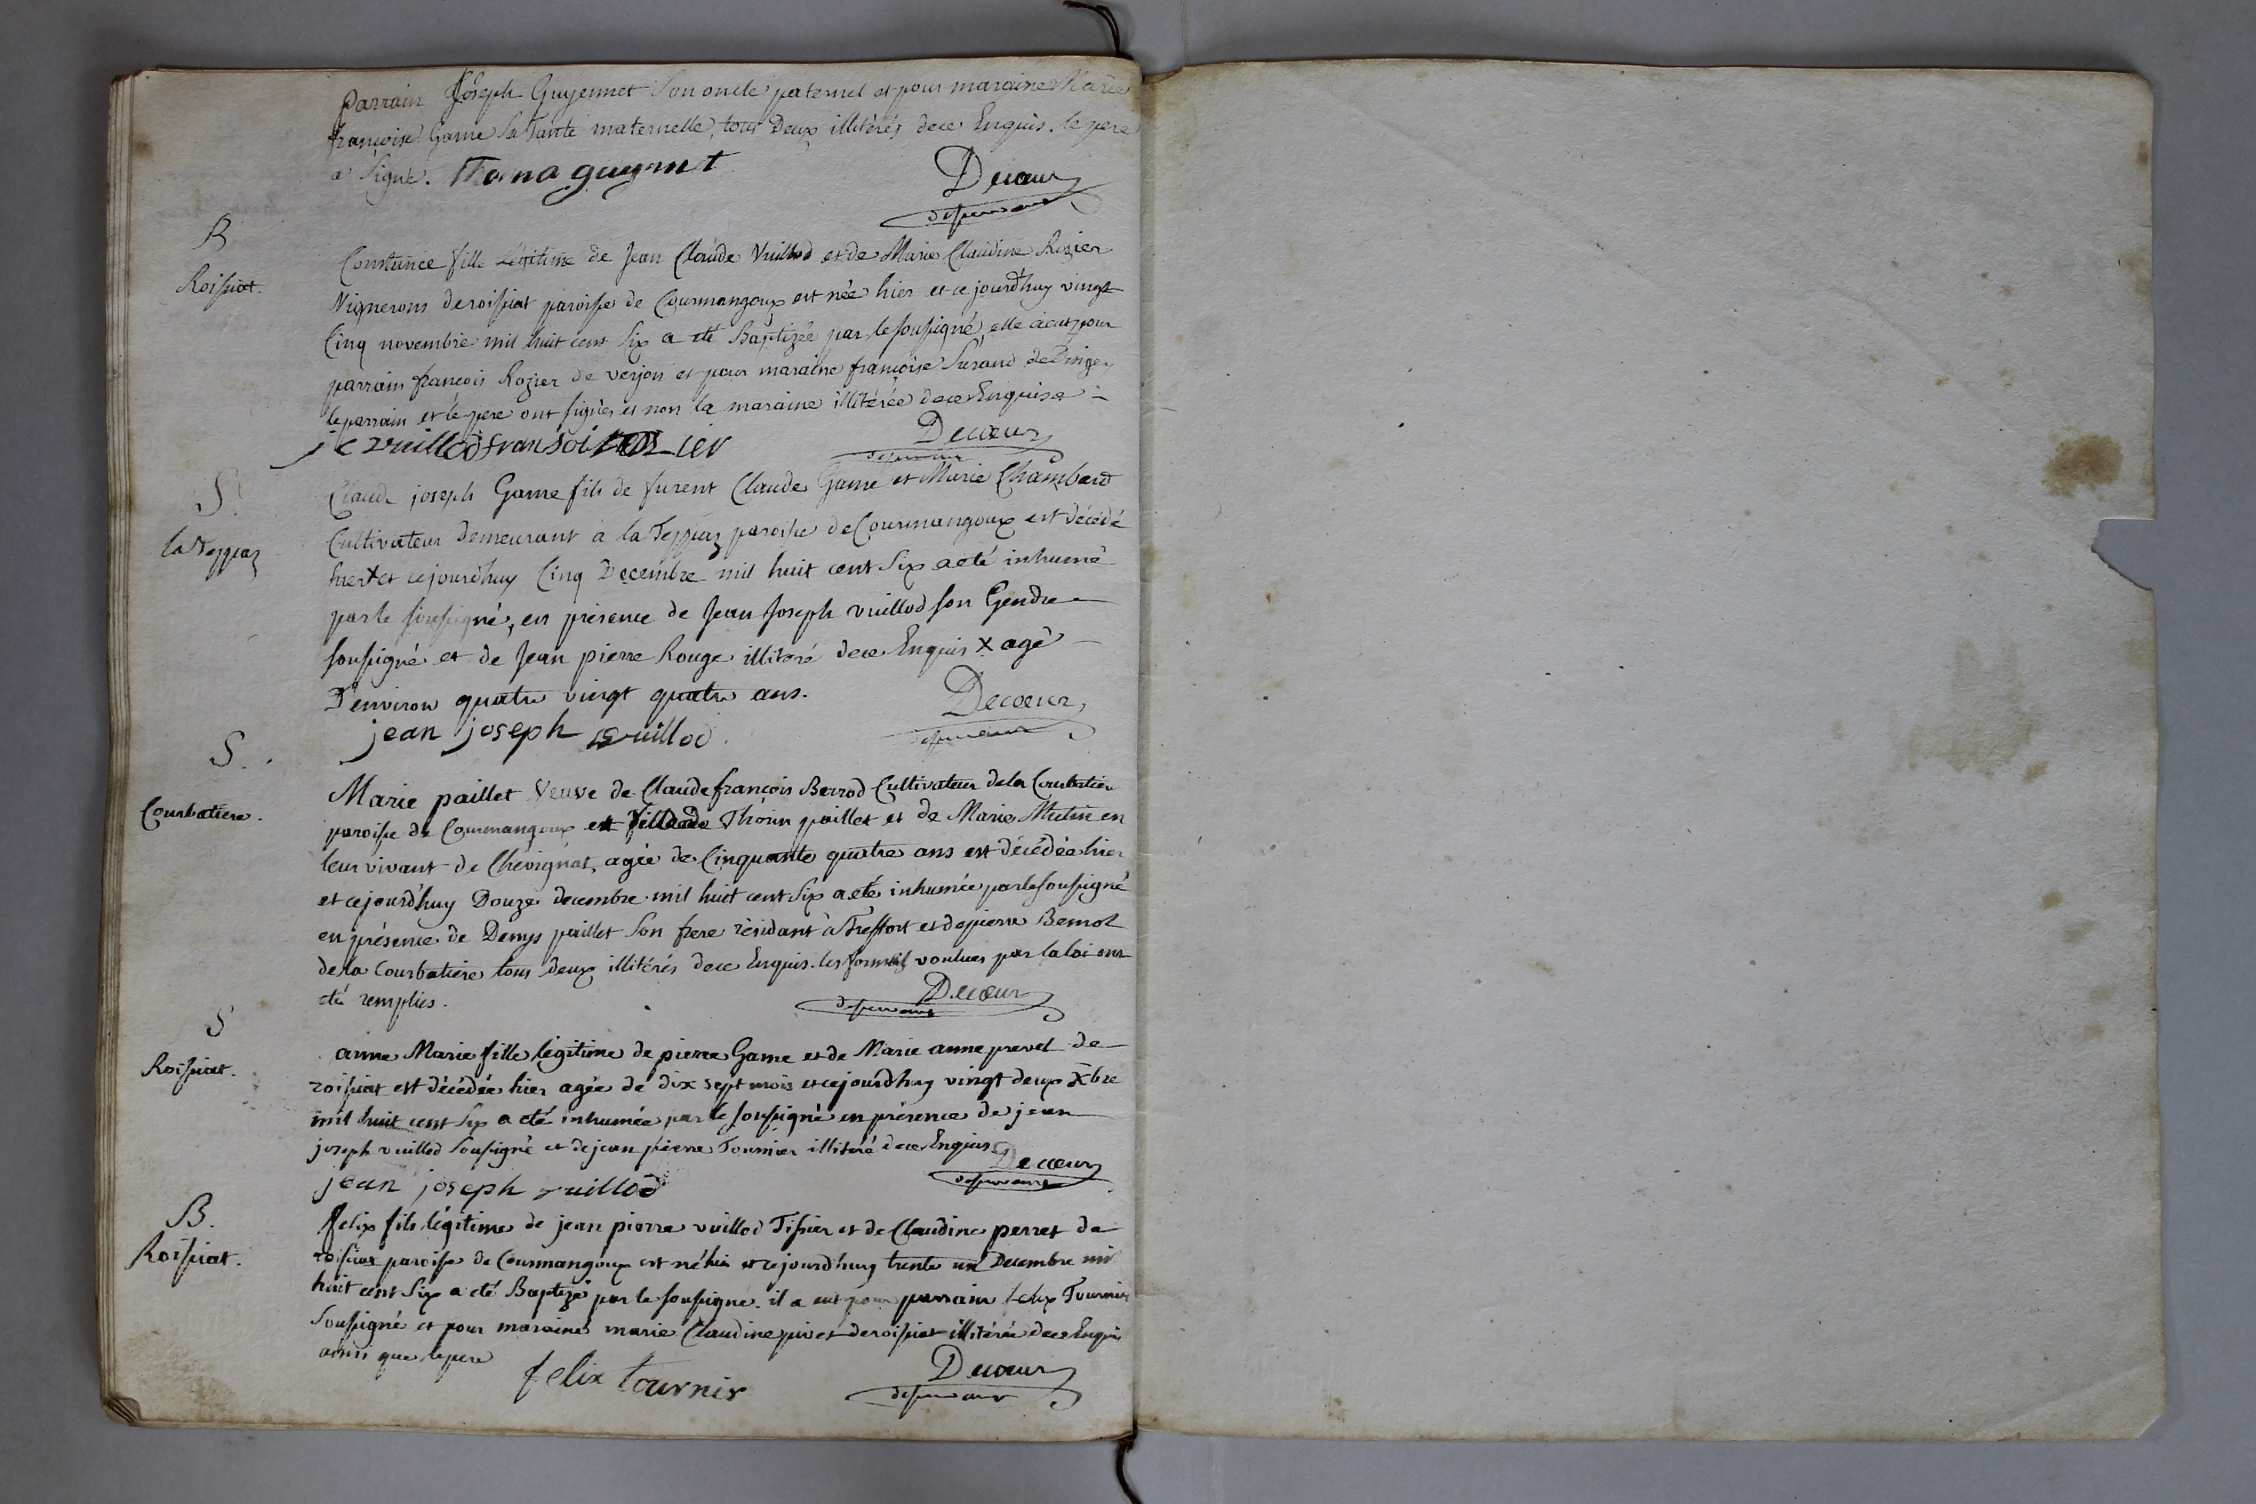 parrain Joseph Guyennet Son oncle paternel et pour maraine Marie
françoise Game Sa Tante maternelle, tous Deux illitérés dece Enquis. le pere
a Signé. Toma guynnt Decœur
desservant
B
Roissiat.
Constance fille légitime de Jean Claude Vuillod et de Marie Claudine Rozier
Vignerons de roissiat paroisse de Courmangoux est née hier et cejourdhuy vingt
Cinq novembre mil huit cent Six a été Baptizée par le soussigné, elle a eut pour
parrain francois Rozier de verjon et pour maraine françoise
le parrain et le pere ont signés et non la maraine illitérée dece Enquise
j c vuillod fransoi rozier Decœur
desservant
S.
la Teppaz
Claude joseph Game fils de furent Claude Game et Marie Chambard
Cultivateur demeurant à la Teppaz paroisse de Courmangoux est décédé
hier x et cejourdhuy Cinq Decembre mil huit cent Six a été inhumé
par le soussigné, en présence de Jean Joseph vuillod son Gendre
soussigné et de Jean pierre Rouge illitéré dece Enquis x agé
D'environ quatre vingt quatre ans.
jean joseph vuillod Decœur
desservant
S.
Courbatiere.
Marie paillet Veuve de Claude françois Berrod Cultivateur dela Courbatiere
paroisse de Courmangoux et fille de Thorin paillet et de Marie Mutin en
leur vivant de Chevignat, agée de Cinquante quatre ans est décédée hier
et cejourdhuy Douze decembre mil huit cent Six a été inhumée par le soussigné
en présence de Denys paillet Son frere résidant à Treffort et de pierre
de la Courbatiere tous deux illitérés dece Enquis. les formes voulues par la loi ont
été remplies. Decœur
desservant
S
Roissiat.
anne Marie fille légitime de pierre Game et de Marie anne prevel de
roissiat est décédée hier agée de dix sept mois et cejourdhuy vingt deux Xbre
mil huit cent Six a été inhumée par le soussigné en présence de jean
joseph vuillod Soussigné et de jean pierre Tournier illitéré dece Enquis
jean joseph vuillod Decœur
desservant
B.
Roissiat.
felix fils légitime de jean pierre vuillod Tissier et de Claudine perret de
roissiat paroisse de Courmangoux est né hier et cejourdhuy trente un Decembre mil
huit cent Six a été Baptizé par le soussigné. il a eut pour parrain felix Tournier
Soussigné et pour maraine marie Claudine pivet de roissiat illitérée dece Enquis
ainsi que le pere
felix tournir Decœur
desservant